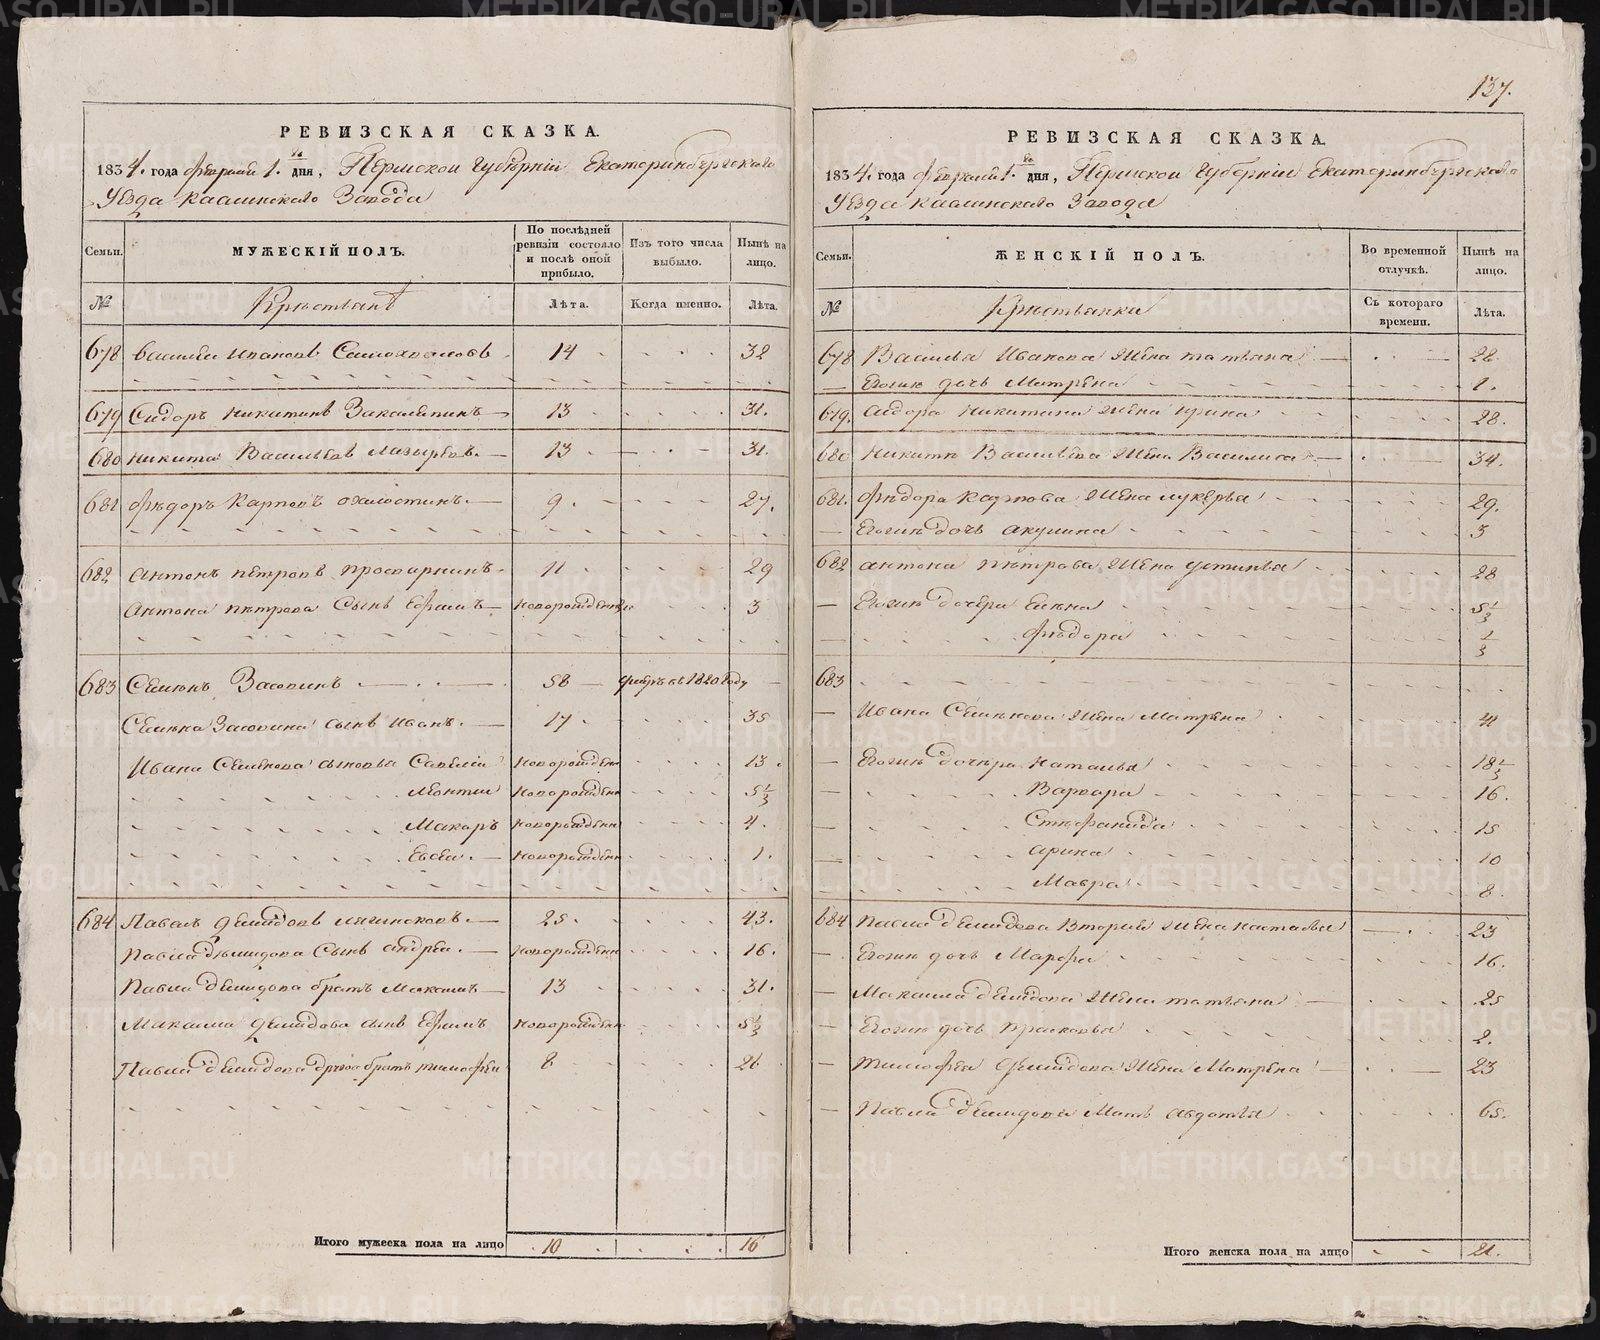 137.
РЕВИЗСКАЯ СКАЗКА.
1834. года февраля 1. го дня, Пермской Губерніи Екатеринбургскаго
Уезда Каслинскаго Завода
Семьи. МУЖЕСКІЙ ПОЛЪ. По послѣдней ревизіи состояло и послѣ оной прибыло. Изъ того числа выбыло. Нынѣ на лицо.
№ Крестьянѣ Лѣта. Когда именно. Лѣта.
678 Василей Ивановъ 14 32
679 Сидоръ Никитинъ 13 31.
680 Никита Васильевъ 13 31.
681 Федоръ Карповъ 9. 27.
682 Антонъ Петровъ 11 29
Антона Петрова Сынъ Ефимъ Новорожденъ 3
683 Семенъ Засыпинъ 58 1820 году
Семена Засыпина сынъ Иванъ. 17 35
Ивана Семенова сыновья Савелій Новорожденъ 13.
Леонтій Новорожденъ 5 1/3
Макаръ Новорожденъ 4.
Евсей. Новорожденъ 1.
684 Павелъ Демидовъ 25. 43.
Павла Демидова Сынъ Андрей. Новорожденъ 16.
Павла Демидова братъ Максимъ 13 31.
Максима Демидова сынъ Ефимъ Новорожденъ 5 1/3
Павла Демидова братъ Тимофей 8 26
Итого мужеска пола на лицо 10 16
РЕВИЗСКАЯ СКАЗКА.
1834. года февраля 1. го дня, Пермской Губерніи Екатеринбургскаго
Уезда Каслинскаго Завода
Семьи. ЖЕНСКІЙ ПОЛЪ. Во временной отлучкѣ. Нынѣ на лицо.
№ Крестьянки Съ котораго времени. Лѣта.
678 Василья Иванова Жена Татьяна 28.
Егоже дочь Матрена 1.
679. Сидора Никитина Жена Ирина 28.
680 Никиты Васильева Жена Василиса 34.
681. Федора Карпова Жена Лукерья 29.
Егоже дочь Акулина 3
682 Антона Петрова Жена Устинья 28
Егоже дочери Елена 5 1/3
Федора 1/3
683
Ивана Семенова Жена Матрена 41
Егоже дочери Наталья 18 1/3
Варвара 16.
Степанида 15
Арина 10
Мавра 8.
684 Павла Демидова Вторая Жена Наталья 23
Егоже дочь Марфа 16.
Максима Демидова Жена Татьяна 25
Егоже дочь Прасковья 2.
Тимофея Демидова Жена Матрена 23
Павла Демидова Мать Авдотья 65.
Итого женска пола на лицо 21.
METRIKI.GASO-URAL.RU